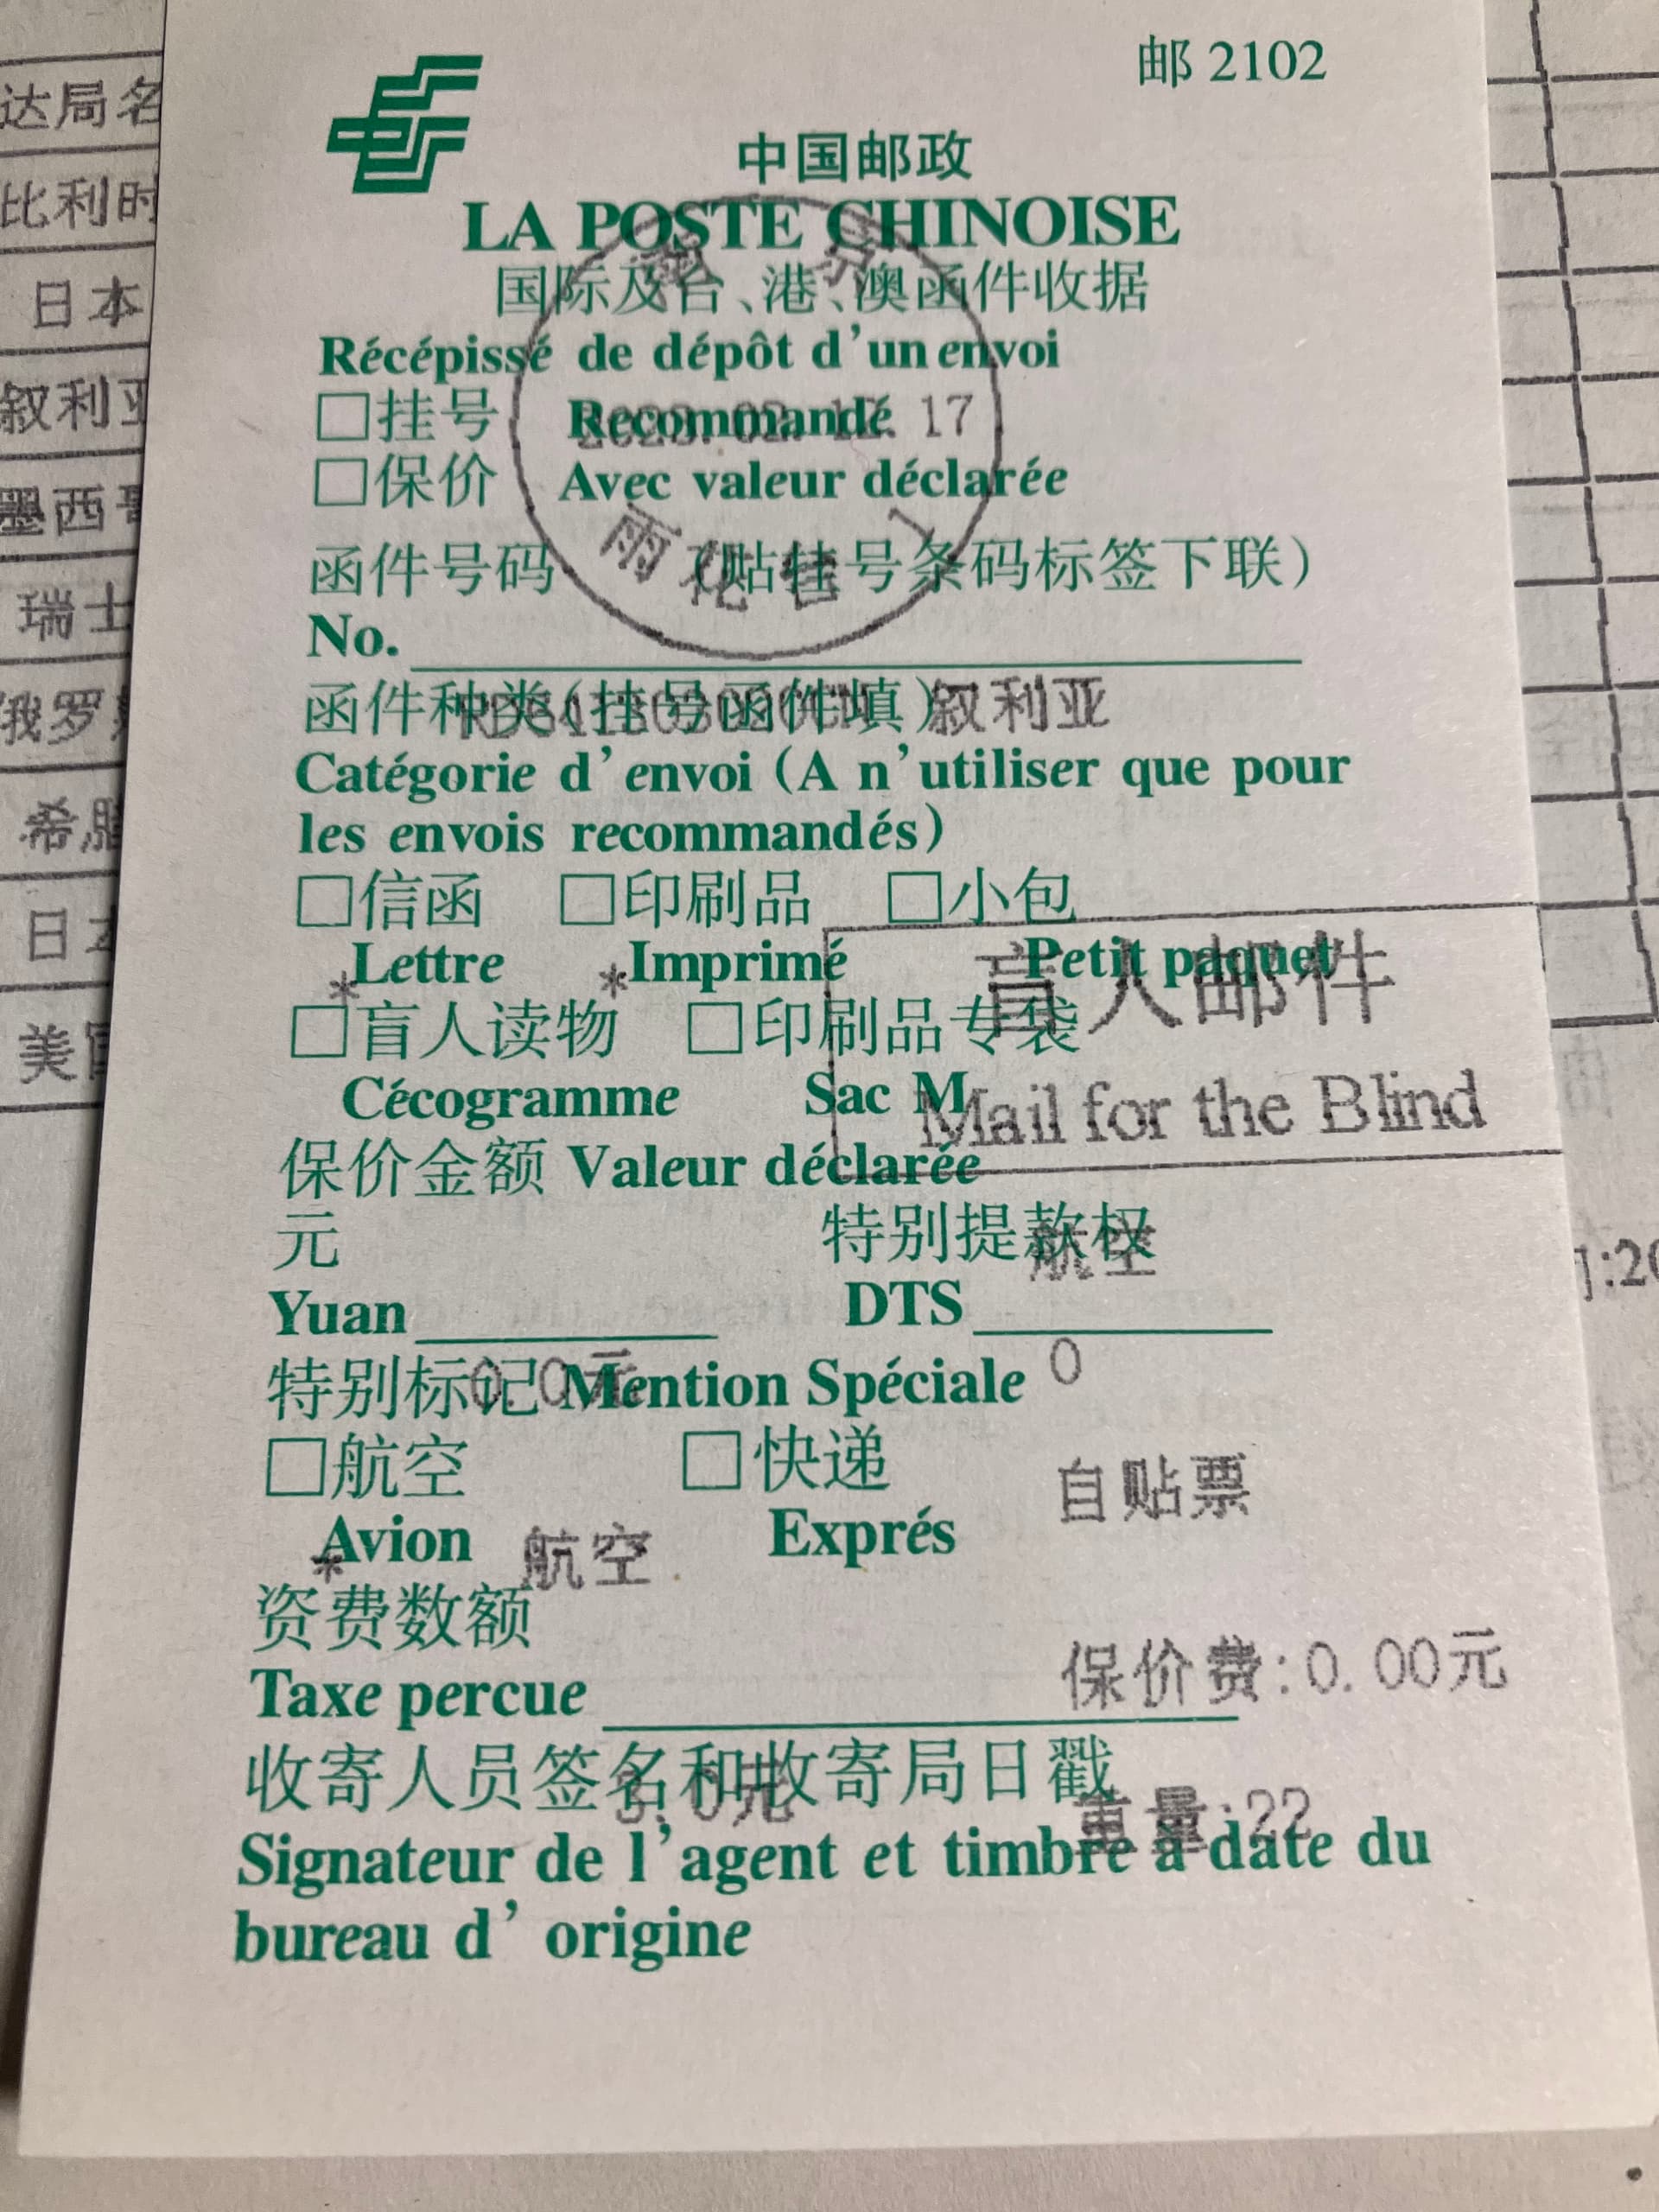 邮 2102
中国邮政
LA POSTE CHINOISE
国际及台、港、澳函件收据
Récépissé de dépôt d'un envoi
□挂号 Recommandé
17
□保价 Avec valeur déclarée
函件号码 (贴挂号条码标签下联)
雨花
No.
函件种类(挂号函件填) 叙利亚
Catégorie d'envoi (A n'utiliser que pour
les envois recommandés)
□信函 □印刷品 □小包
*Lettre *Imprimé Petit paquet
盲人邮件
□盲人读物 □印刷品专袋
Cécogramme Sac M
Mail for the Blind
保价金额 Valeur déclarée
元 特别提款权
航空
Yuan DTS
特别标记 Mention Spéciale 0
0.0元
□航空 □快递 自贴票
*Avion 航空 Exprés
资费数额
保价费:0.00元
Taxe percue
收寄人员签名和收寄局日戳
重量:22
Signateur de l'agent et timbre à date du
bureau d' origine
达局名
比利时
日本
叙利亚
墨西哥
瑞士
俄罗
希腊
日本
美国
:20